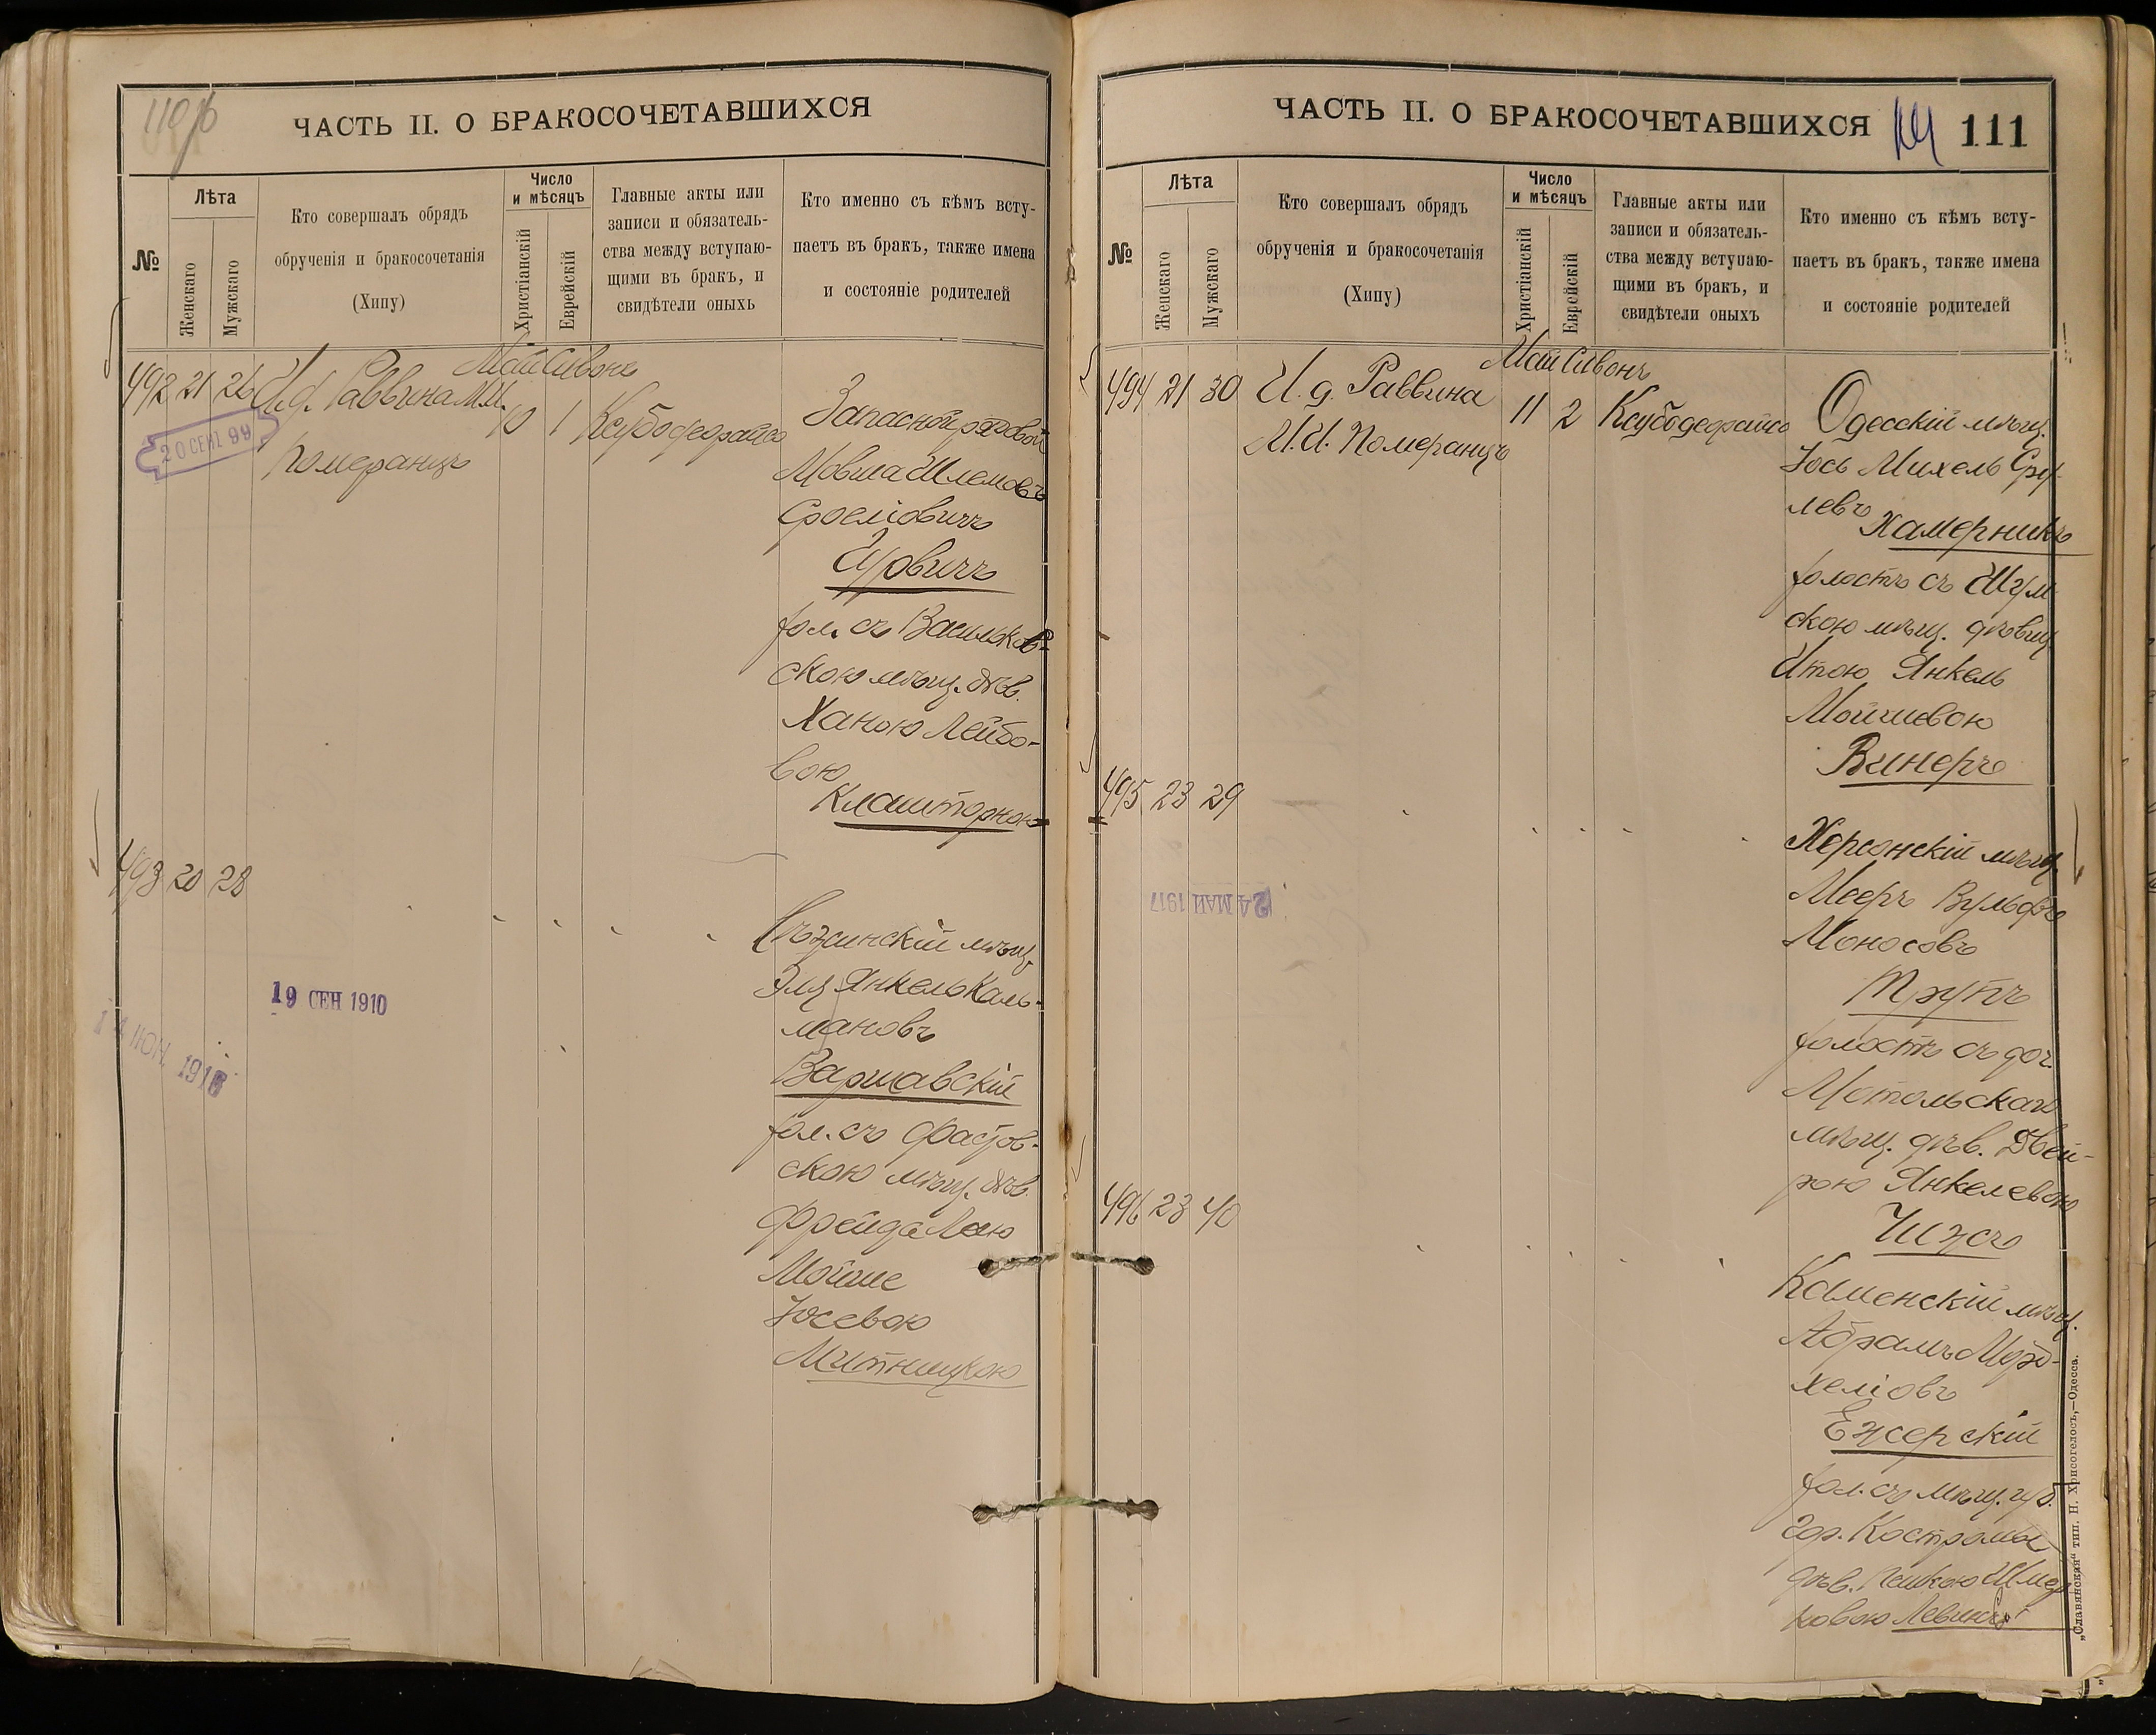 110 об
ЧАСТЬ II. О БРАКОСОЧЕТАВШИХСЯ
№
Лѣта
Женскаго
Мужскаго
Кто совершалъ обрядъ
обрученія и бракосочетанія
(Хипу)
Число
и мѣсяцъ
Христіанскій
Еврейскій
Главные акты или
записи и обязатель-
ства между вступаю-
щими въ бракъ, и
свидѣтели оныхъ
Кто именно съ кѣмъ всту-
паетъ въ бракъ, также имена
и состояніе родителей
Май Сивонъ
492 21 26 И.д. Раввина М.И.
Померанцъ
10 1 Ксубодефрайсо
20 СЕНТ 99
Запасной рядовой
Мовша Шлемовъ
Сроеліовичъ
Гурвичъ
хол. съ Васильков-
скою мѣщ. дѣв.
Ханою Лейбо-
вою
Клаиторною
493 20 28
19 СЕН 1910
14 ІЮН. 1916
мѣщ.
Янкель Каль-
мановъ
Варшавскій
хол. съ Фастов-
скою мѣщ. дѣв.
Фрейда Лею
Мойше
Іосевою
Митницкою
ЧАСТЬ II. О БРАКОСОЧЕТАВШИХСЯ
111
№
Лѣта
Женскаго
Мужскаго
Кто совершалъ обрядъ
обрученія и бракосочетанія
(Хипу)
Число
и мѣсяцъ
Христіанскій
Еврейскій
Главные акты или
записи и обязатель-
ства между вступаю-
щими въ бракъ, и
свидѣтели оныхъ
Кто именно съ кѣмъ всту-
паетъ въ бракъ, также имена
и состояніе родителей
Май Сивонъ
494 21 30 И.д. Раввина
М.И. Померанцъ
11 2 Ксубодефрайсо
Одесскій мѣщ.
Іось Михель Сру-
левъ
Хамерникъ
холостъ съ Шум
скою мѣщ. дѣвиц.
Итою Янкель
Мойшевою
Винеръ
495 23 29
24 МАЙ 1917
Херсонскій мѣщ.
Мееръ Вульфъ
Моносовъ
Трупъ
холостъ съ доч.
Мотольскаго
мѣщ. дѣв. Двей-
рою Янкелевою
Чижъ
496 23 40
Каменскій мѣщ.
Абрамъ Мордо-
хеліовъ
Ежерскій
хол. съ мѣщ. губ.
гор. Костромы
дѣв. Пешкою Шмер
ковою Левинъ
„Славянская“ тип. Н. Хрисогелосъ,—Одесса.